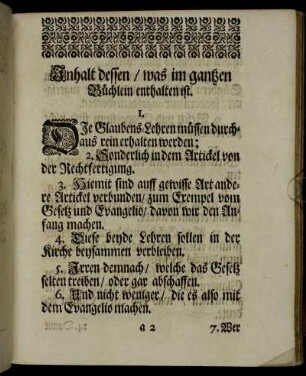 Inhalt dessen / was im gantzen
Büchlein enthalten ist.
I.
DIe Glaubens-Lehren müssen durch-
aus rein erhalten werden;
2. Sonderlich in dem Artickel von
der Rechtfertigung.
3. Hiemit sind auff gewisse Art ande-
re Artickel verbunden / zum Exempel vom
Gesetz und Evangelio / davon wir den An-
fang machen.
4. Diese beyde Lehren sollen in der
Kirche beysammen verbleiben.
5. Irren demnach / welche das Gesetz
selten treiben / oder gar abschaffen.
6. Und nicht weniger / die es also mit
dem Evangelio machen.
a 2 7. Wer